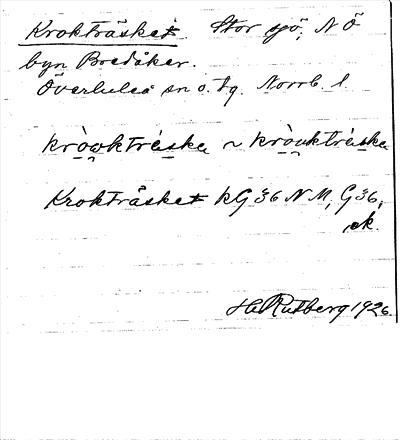 Krokträsket Stor sjö, N Ö
byn Bredåker.
Överluleå sn o. tg. Norrb. l.
kròoktrèska ~ kròuktrèska
Krokträsket kG 36 N M, G 36,
ek.
H. Rutberg 1926.